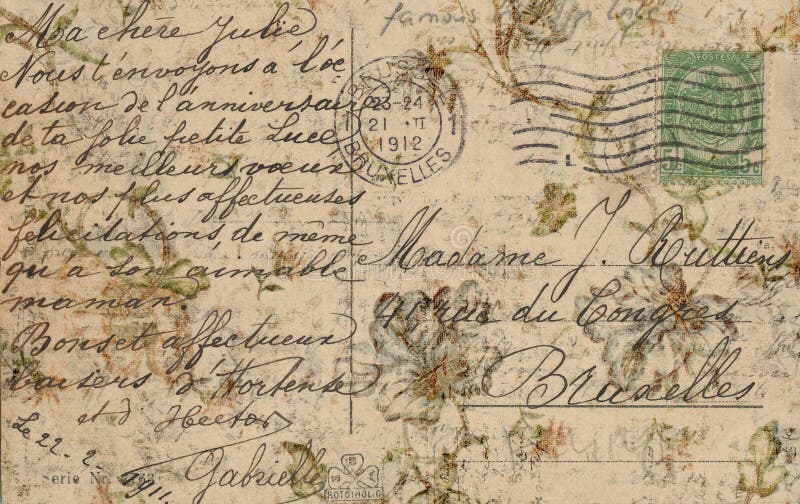 Ma chère Julie
Nous t'envoyons à l'oc
casion de l'anniversaire
de ta jolie petite Luce
nos meilleurs vœux
et nos plus affectueuses
félicitations, de même
qu'à son aimable
maman.
Bons et affectueux
baisers d'Hortense
et d' Hector
Le 22-2
1911.
Gabrielle
Serie Nr.
ROTOPHOT
famous
BRUXELLES
23-24
21 II
1912
BRUXELLES
1 1
POSTES
5c 5c
Madame J. Ruttiens
41, rue du Congrès
Bruxelles
dreamstime